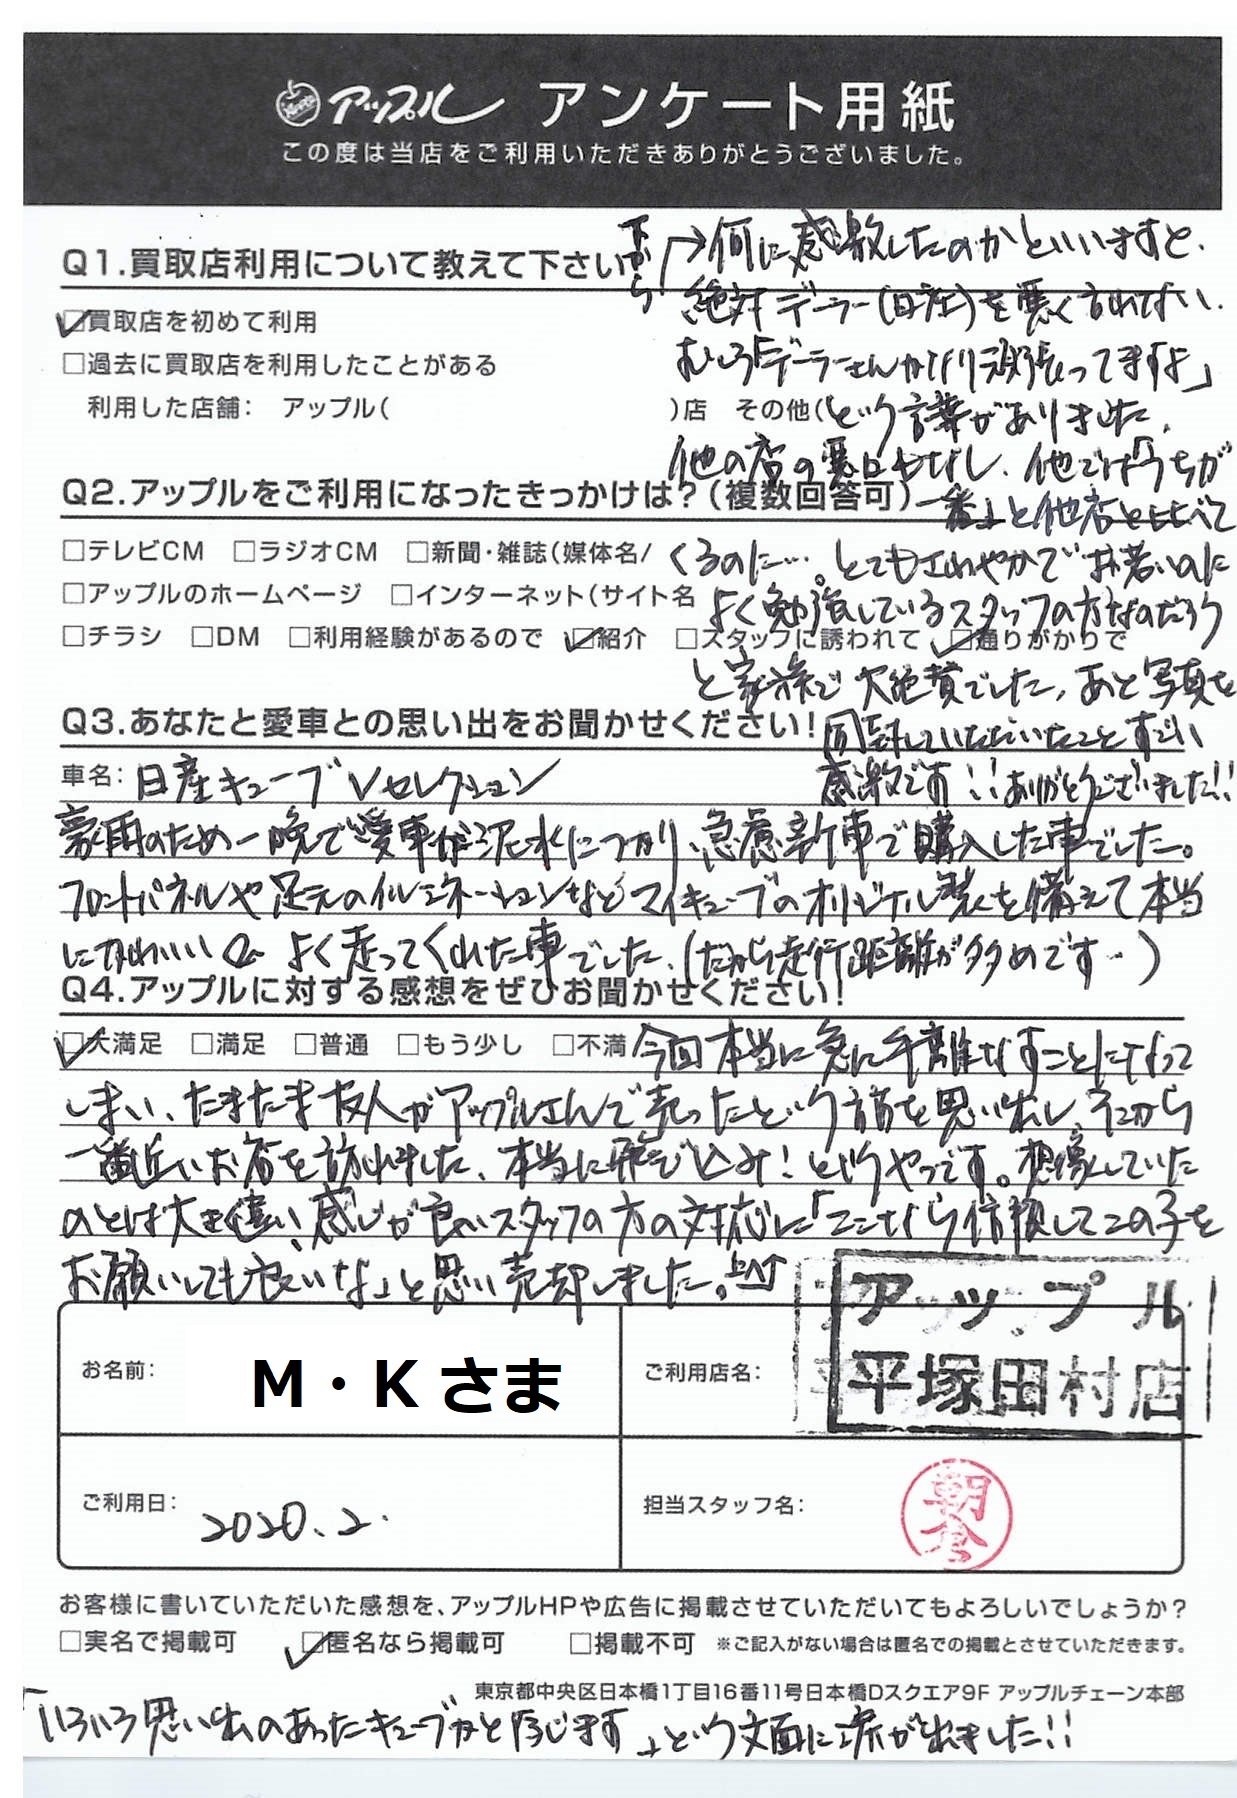 アップル アンケート用紙
この度は当店をご利用いただきありがとうございました。
Q1.買取店利用について教えて下さい
☑買取店を初めて利用
□過去に買取店を利用したことがある
利用した店舗： アップル( )店 その他(
Q2.アップルをご利用になったきっかけは？(複数回答可)
□テレビCM □ラジオCM □新聞・雑誌(媒体名/
□アップルのホームページ □インターネット(サイト名
□チラシ □DM □利用経験があるので ☑紹介 □スタッフに誘われて ☑通りがかりで
Q3.あなたと愛車との思い出をお聞かせください！
車名： 日産キューブVセレクション
豪雨のため一晩で愛車が泥水につかり、急遽新車で購入した車でした。
フロントパネルや足元のイルミネーションなどマイキューブのオリジナル装を備えて本当
にかわいい よく走ってくれた車でした。(だから走行距離が多めです…)
Q4.アップルに対する感想をぜひお聞かせください！
☑大満足 □満足 □普通 □もう少し □不満 今回本当に急に手離なすことになって
しまい、たまたま友人がアップルさんで売ったという言葉を思い出し、そこから
一番近いお店を訪れました、本当に飛び込み！というやつです。想像していた
のとは大きく違い、感じが良いスタッフの方の対応に「ここなら信頼してこの子を
お願いしても良いな」と思い売却しました。上へ↑
下から
→何に感激したのかといいますと、
絶対デーラー(日産)を悪く言わない、
むしろ「デーラーさんかなり頑張ってますよ」
という言葉がありました。
他の店の悪口もなし、他では「うちが
一番」と他店と比べて
くるのに…。とてもさわやかでお若いのに
よく勉強しているスタッフの方なのだろう
と家族で大絶賛でした。あと写真を
同封していただいたことすごい
感激です！！ありがとうございました!!
お名前： M・Kさま
ご利用店名： アップル
平塚田村店
ご利用日： 2020.2.
担当スタッフ名： 朝倉
お客様に書いていただいた感想を、アップルHPや広告に掲載させていただいてもよろしいでしょうか？
□実名で掲載可 ☑匿名なら掲載可 □掲載不可 ※ご記入がない場合は匿名での掲載とさせていただきます。
東京都中央区日本橋1丁目16番11号日本橋Dスクエア9F アップルチェーン本部
「いろいろ思い出のあったキューブかと存じます」という文面に涙が出ました!!